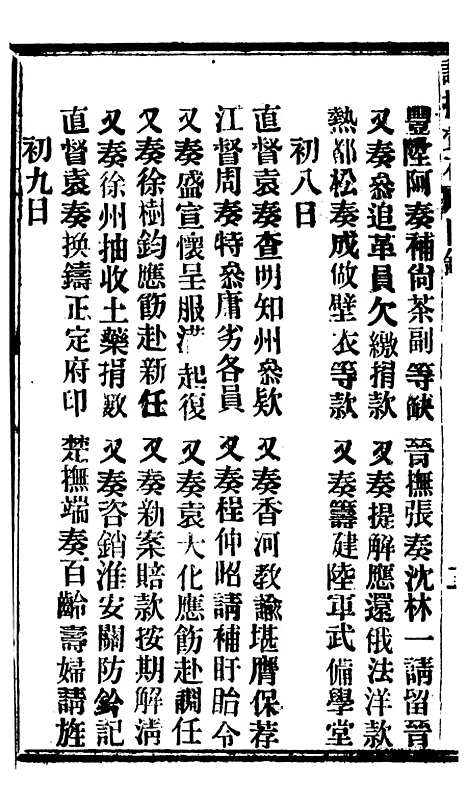 豐陞阿奏補尙茶副等缺
晉撫張奏沈林一請留晉
又奏叅追革員欠繳捐款
又奏提解應還俄法洋款
熱都松奏成做壁衣等款
又奏籌建陸軍武備學堂
初八日
直督袁奏查明知州叅欵
又奏香河教諭堪膺保荐
江督周奏特叅庸劣各員
又奏程仲昭請補盱眙令
又奏盛宣懷呈服滿起復
又奏袁大化應飭赴調任
又奏徐樹鈞應飭赴新任
又奏新案賠款按期解清
又奏徐州抽收土藥捐數
又奏咨銷淮安關防鈐記
直督袁奏換鑄正定府印
楚撫端奏百齡壽婦請旌
初九日